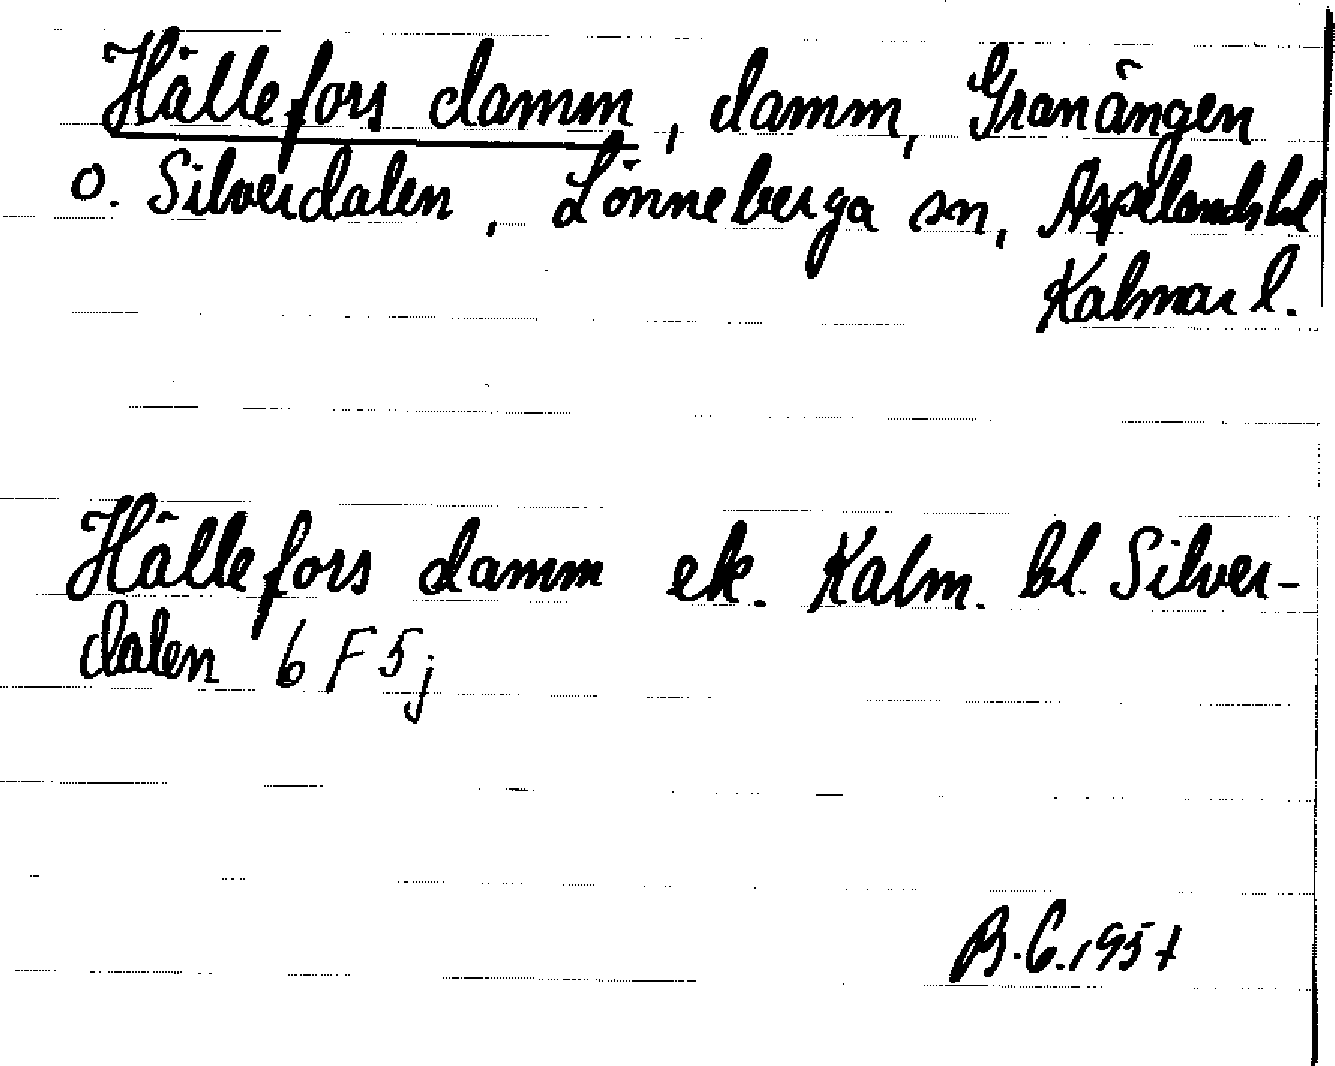 Hällefors damm, damm, Granängen
o. Silverdalen, Lönneberga sn, Aspelands hd
Kalmar l.
Hällefors damm ek. Kalm. bl. Silver-
dalen 6 F 5 j
B.G. 1957